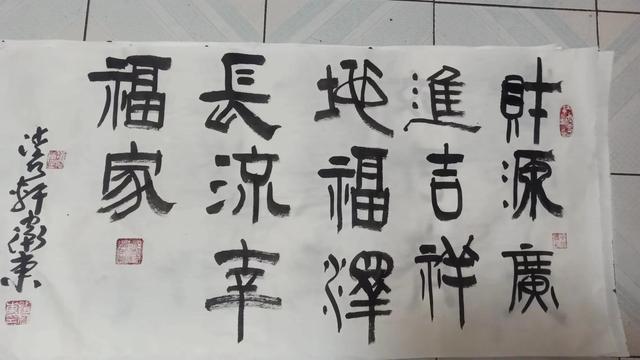 財源廣
進吉祥
地福澤
長流幸
福家
軒衛東